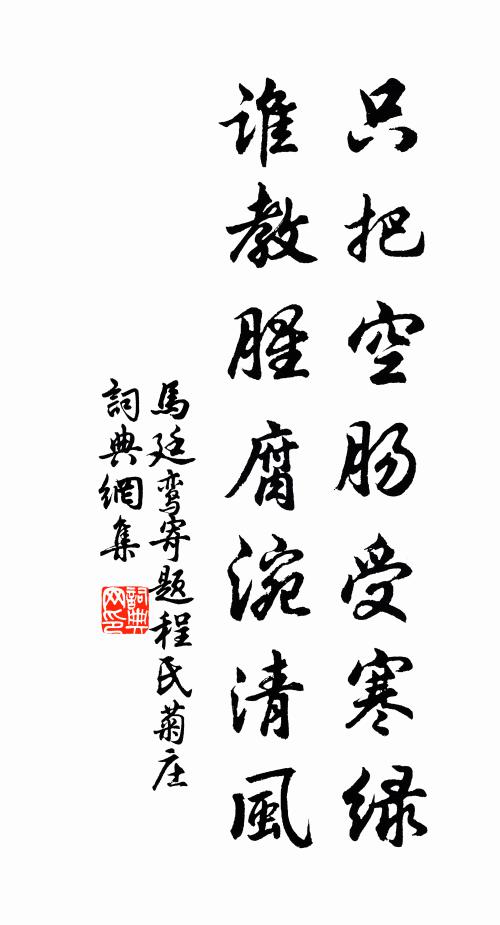 只把空肠受寒绿
谁教腥腐涴清風
馬廷鸾寄题程氏菊庄
詞典網集
詞典
网印